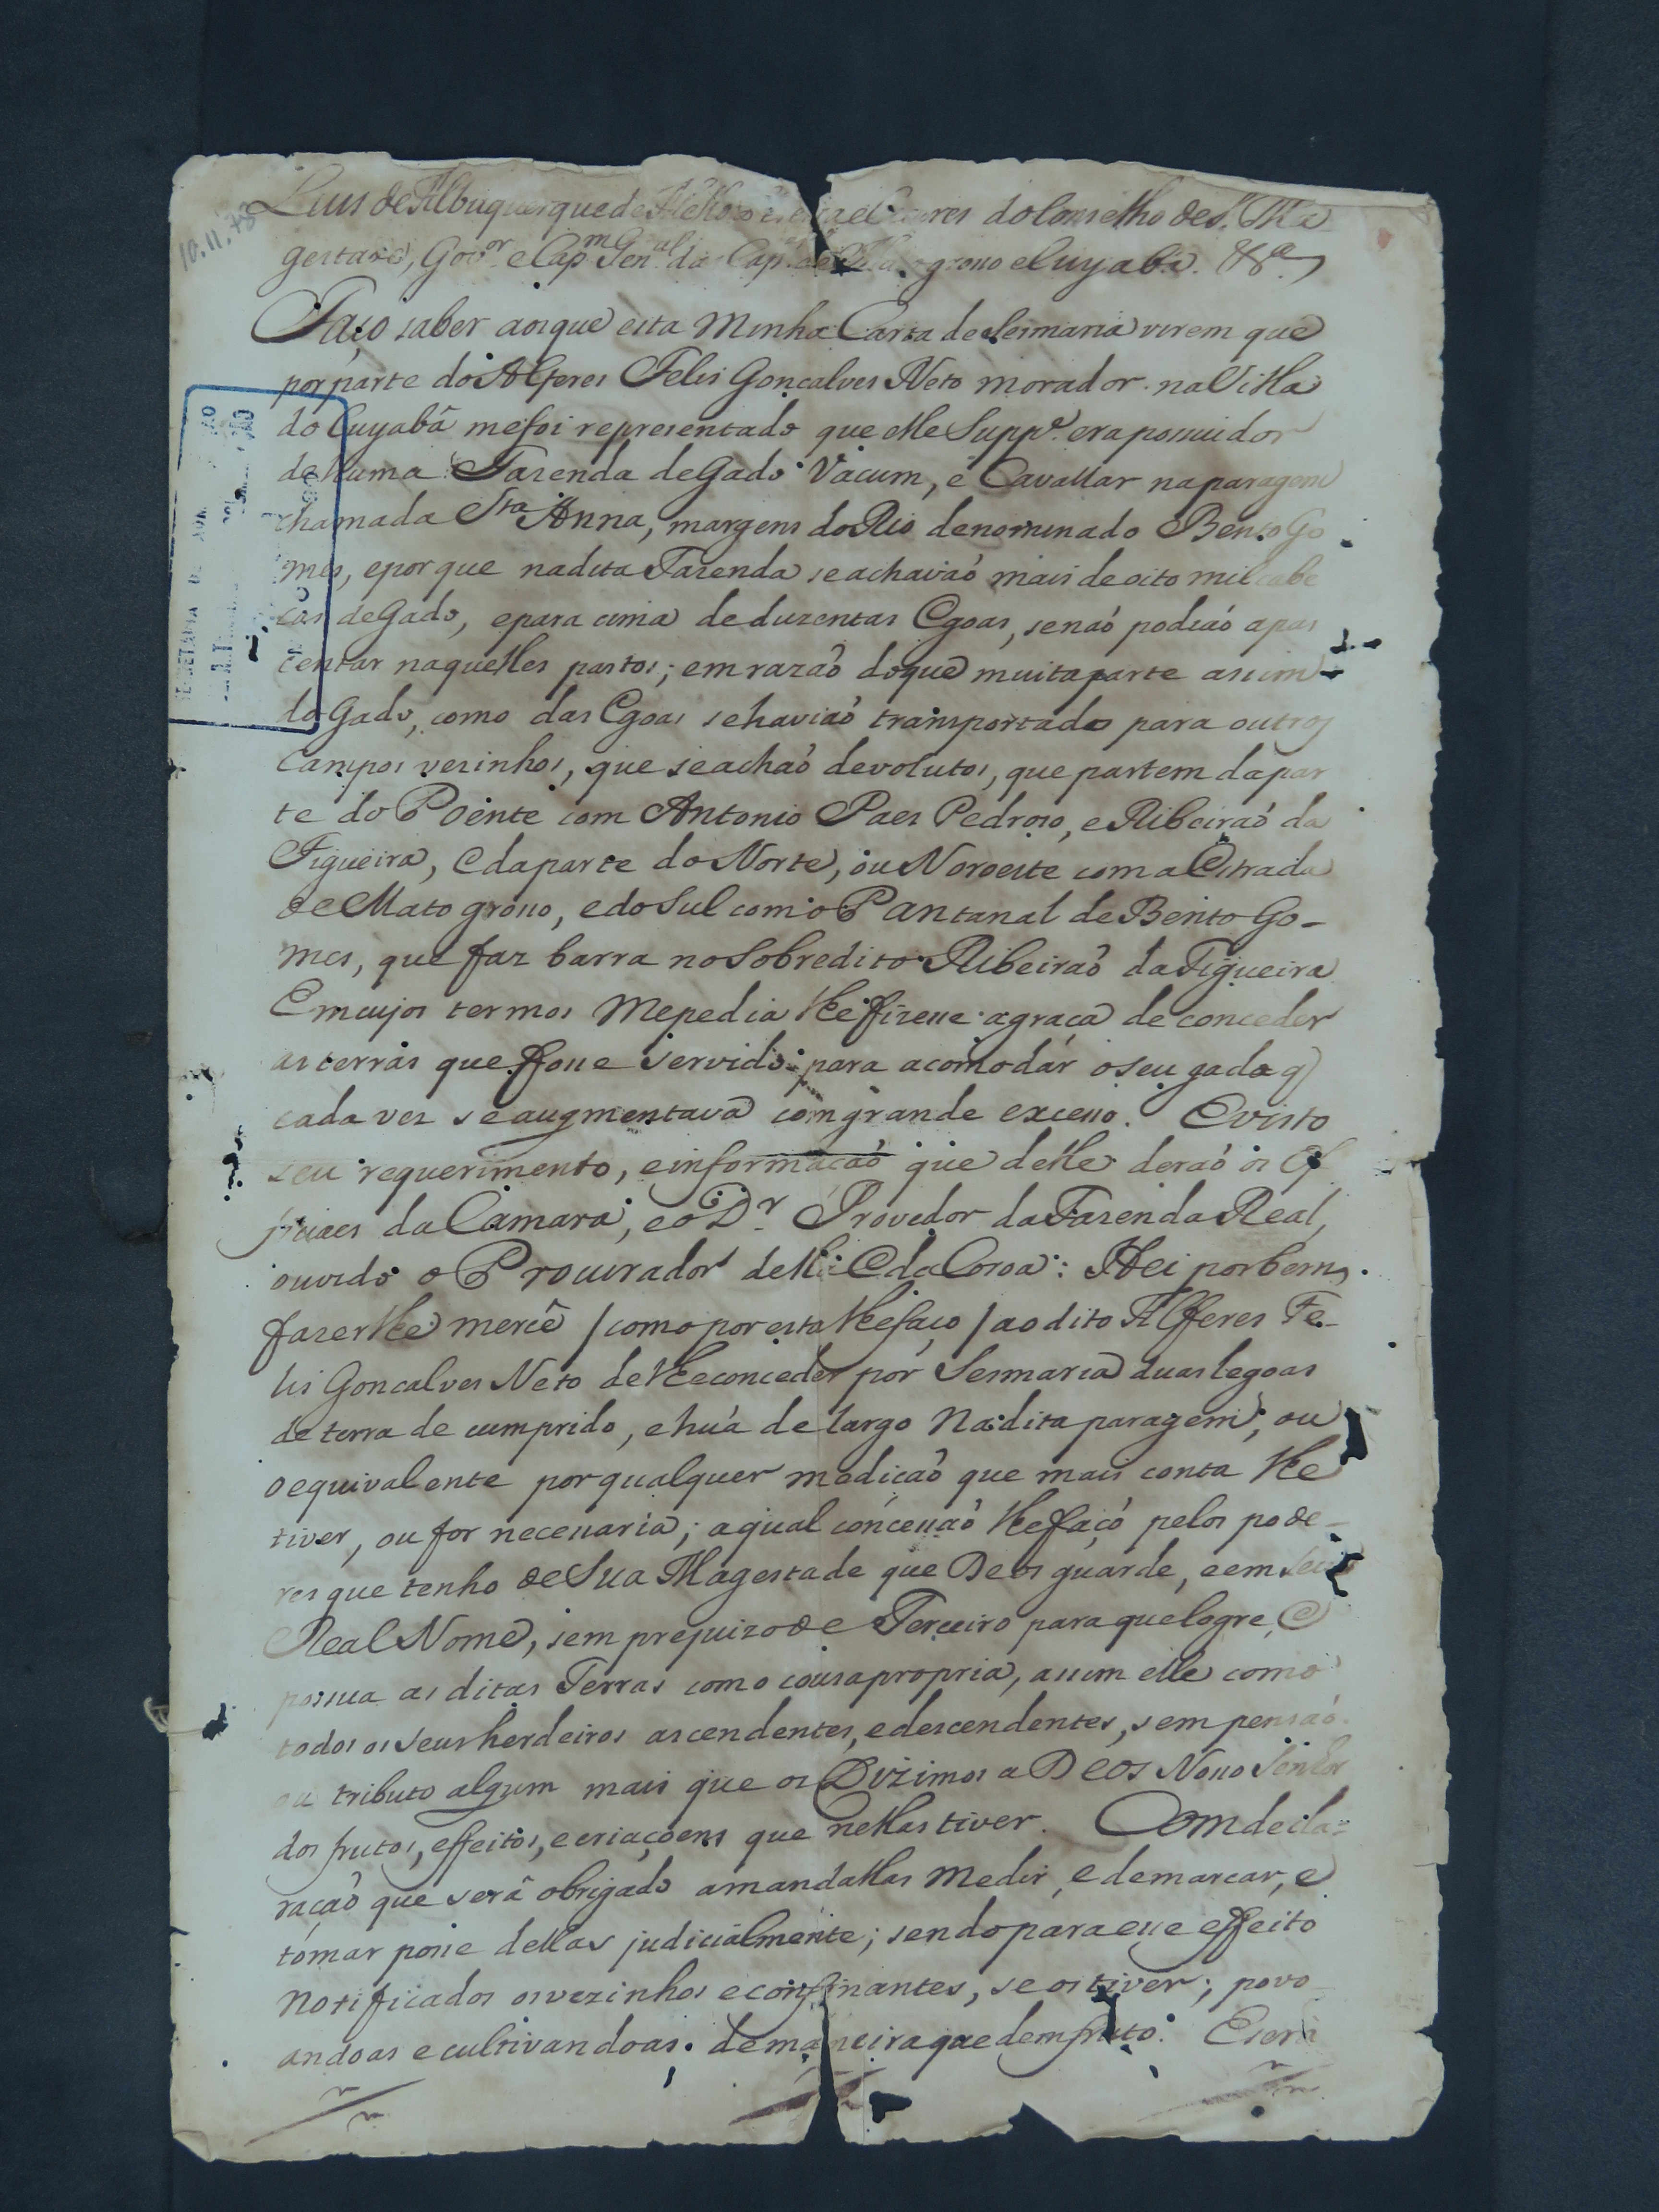 Luis de Albuquerque de Mello Pereira e Caceres do Conselho de S. Ma
gestade, Gov.or e Cap.m Gen.al da Cap.nia de Mato grosso e Cuyabá. &.a
10.11.78
Faço saber aos que esta Minha Carta de Sesmaria virem que
por parte do Alferes Felis Gonçalves Neto morador na Villa
do Cuyabâ me foi representado que elle Supp.e era possuidor
de huma Fazenda de Gado Vacum, e Cavallar na paragem
chamada S.ta Anna, margens do Rio denominado Bento Go
mes, e porque na dita Fazenda se achavaõ mais de oito mil cabe
ças de Gado, e para cima de duzentas Egoas, se naõ podiaõ apas
centar naquelles pastos; em razaõ do que muita parte assim
do Gado, como das Egoas se haviaõ transportado para outros
Campos vezinhos, que se achaõ devolutos, que partem da par
te do Poente com Antonio Paes Pedroso, e Ribeiraõ da
Figueira, E da parte do Norte, ou Noroeste com a Estrada
de Mato grosso, e do Sul com o Pantanal de Bento Go-
mes, que faz barra no Sobredito Ribeiraõ da Figueira
Em cujos termos Me pedia lhe fizesse a graça de conceder
as terras que fosse servido para acomodár o seu gado q
cada vez se augmentava com grande excesso. E visto
seu requerimento, e informaçaõ que delle deraõ os Of
ficiaes da Camara, e o D.r Provedor da Fazenda Real,
ouvido o Procurador della E da Coroa: Hei por bem
fazer lhe mercê / como por esta lhe faço / ao dito Alferes Fe-
lis Goncalves Neto de lhe conceder por Sesmaria duas legoas
de terra de cumprido, e huá de largo Na dita paragem, ou
o equivalente por qualquer mediçaõ que mais conta lhe
tiver, ou for necessaria; a qual concessaõ lhe faço pelos pode-
res que tenho de Sua Magestade que Deos guarde, e em seu
Real Nome, sem prejuizo de Terceiro para que logre, E
possua as ditas Terras como cousa propria, assim elle como
todos os seus herdeiros ascendentes, e descendentes, sem pensaõ
ou tributo algum mais que os Dizimos a Deos Nosso Senhor
dos frutos, effeitos, e criaçoens que nellas tiver. Com decla=
raçaõ que serâ obrigado a mandallas Medir, e demarcar, e
tomar posse dellas judicialmente; sendo para esse effeito
Notificados os vezinhos e confinantes, se os tiver; povo
andoas e cultivandoas de maneira que dem fruto. E será